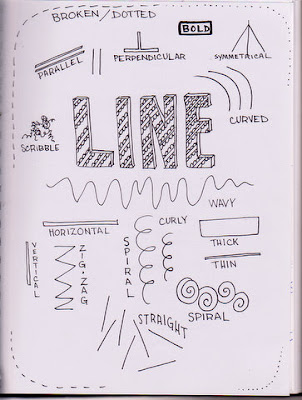 BROKEN/DOTTED
BOLD
PARALLEL
PERPENDICULAR
SYMMETRICAL
LINE
CURVED
SCRIBBLE
WAVY
HORIZONTAL
CURLY
THICK
VERTICAL
ZIG-ZAG
SPIRAL
THIN
STRAIGHT
SPIRAL